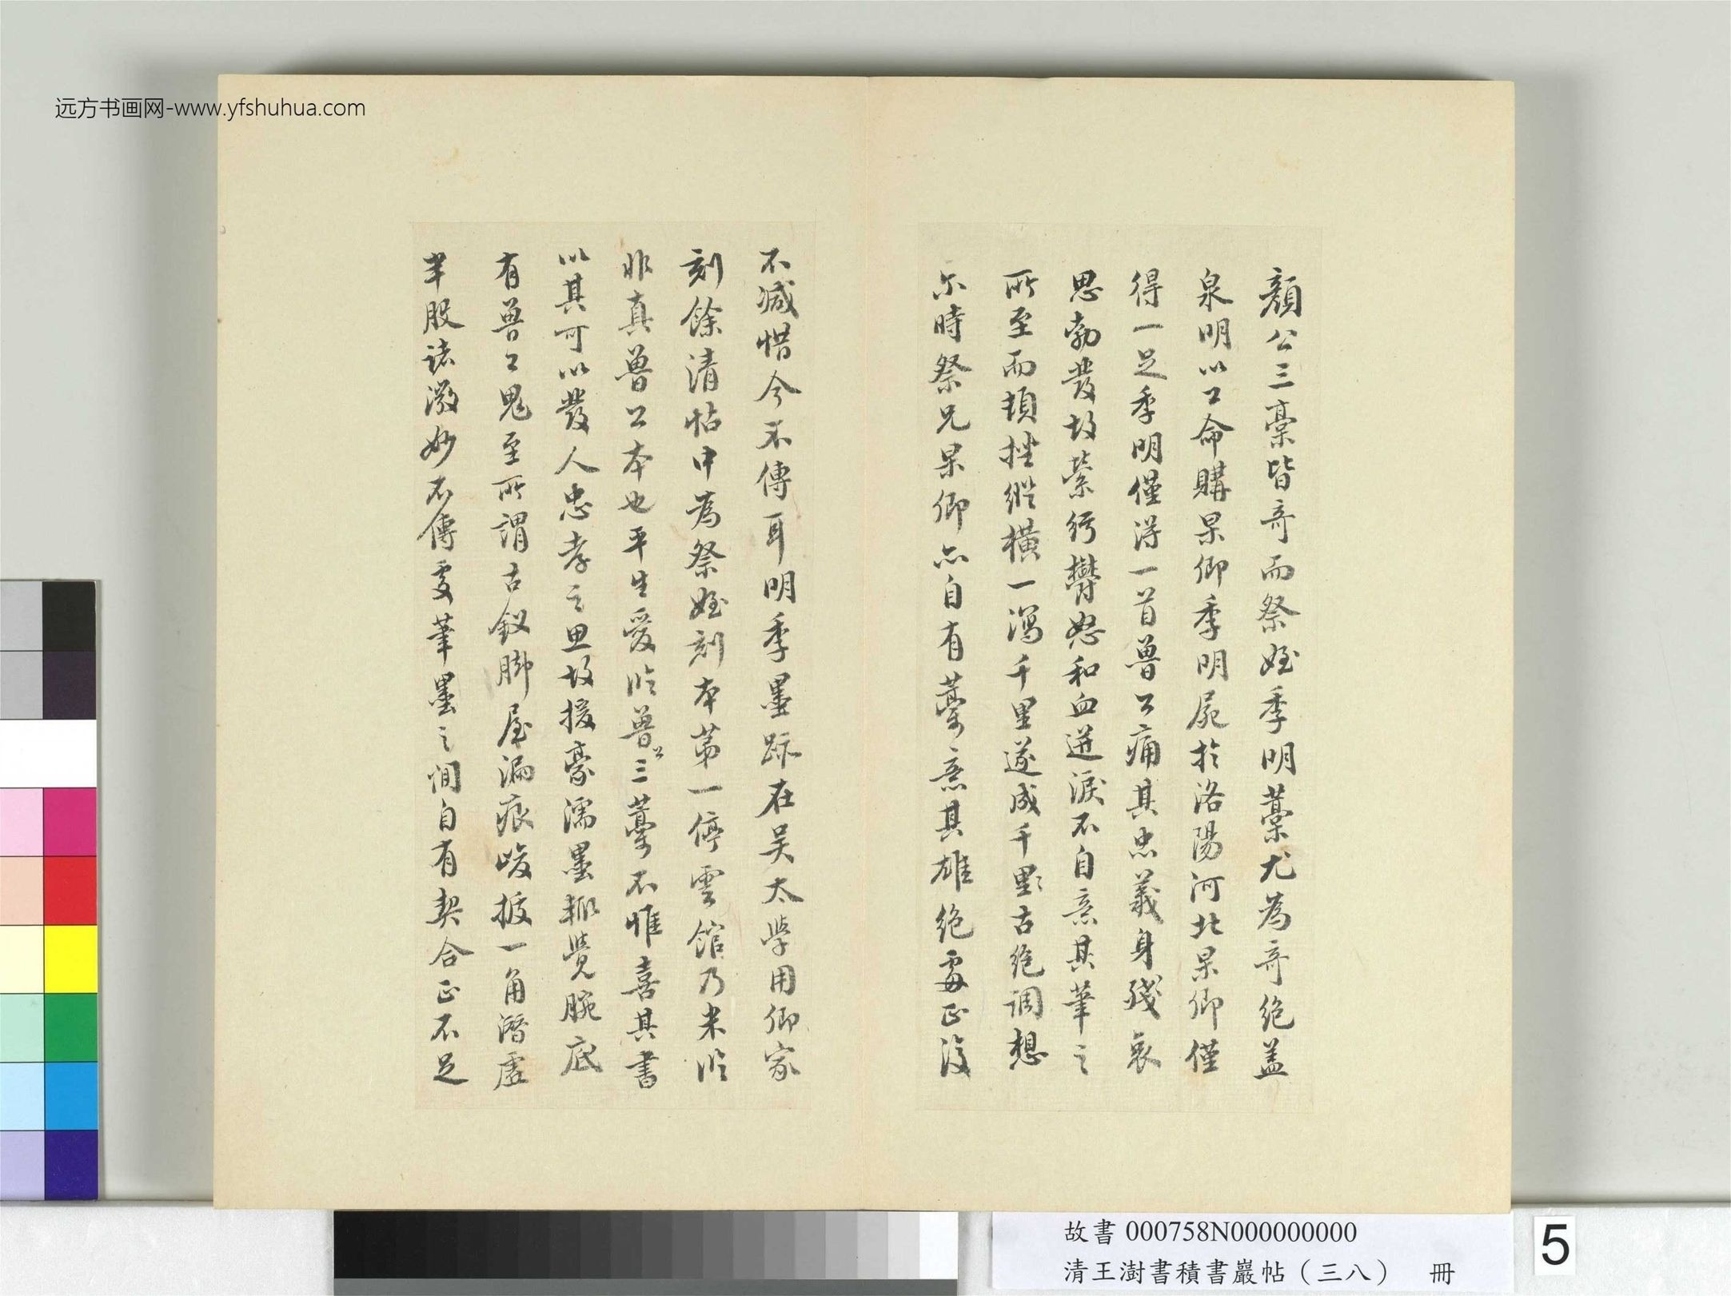 远方书画网-www.yfshuhua.com
顏公三稾皆奇而祭姪季明藁尤為奇絶蓋
泉明以公命購杲卿季明屍於洛陽河北杲卿僅
得一足季明僅得一首魯公痛其忠義身殘哀
思勃發故縈紆鬱怒和血迸淚不自意其筆之
所至而頓挫縱橫一瀉千里遂成千古絶調想
尓時祭兄杲卿亦自有藁意其雄絶處正復
不減惜今不傳耳明季墨跡在吴太學用卿家
刻餘清帖中為祭姪刻本第一停雲館乃米臨
非真魯公本也平生愛臨魯公三藁不惟喜其書
以其可以發人忠孝之思故援豪濡墨輒覺腕底
有魯公鬼至所謂古釵脚屋漏痕峻拔一角潛虛
半股諸激妙不傳處筆墨之閒自有契合正不足
故書 000758N000000000
清王澍書積書巖帖（三八） 冊
5